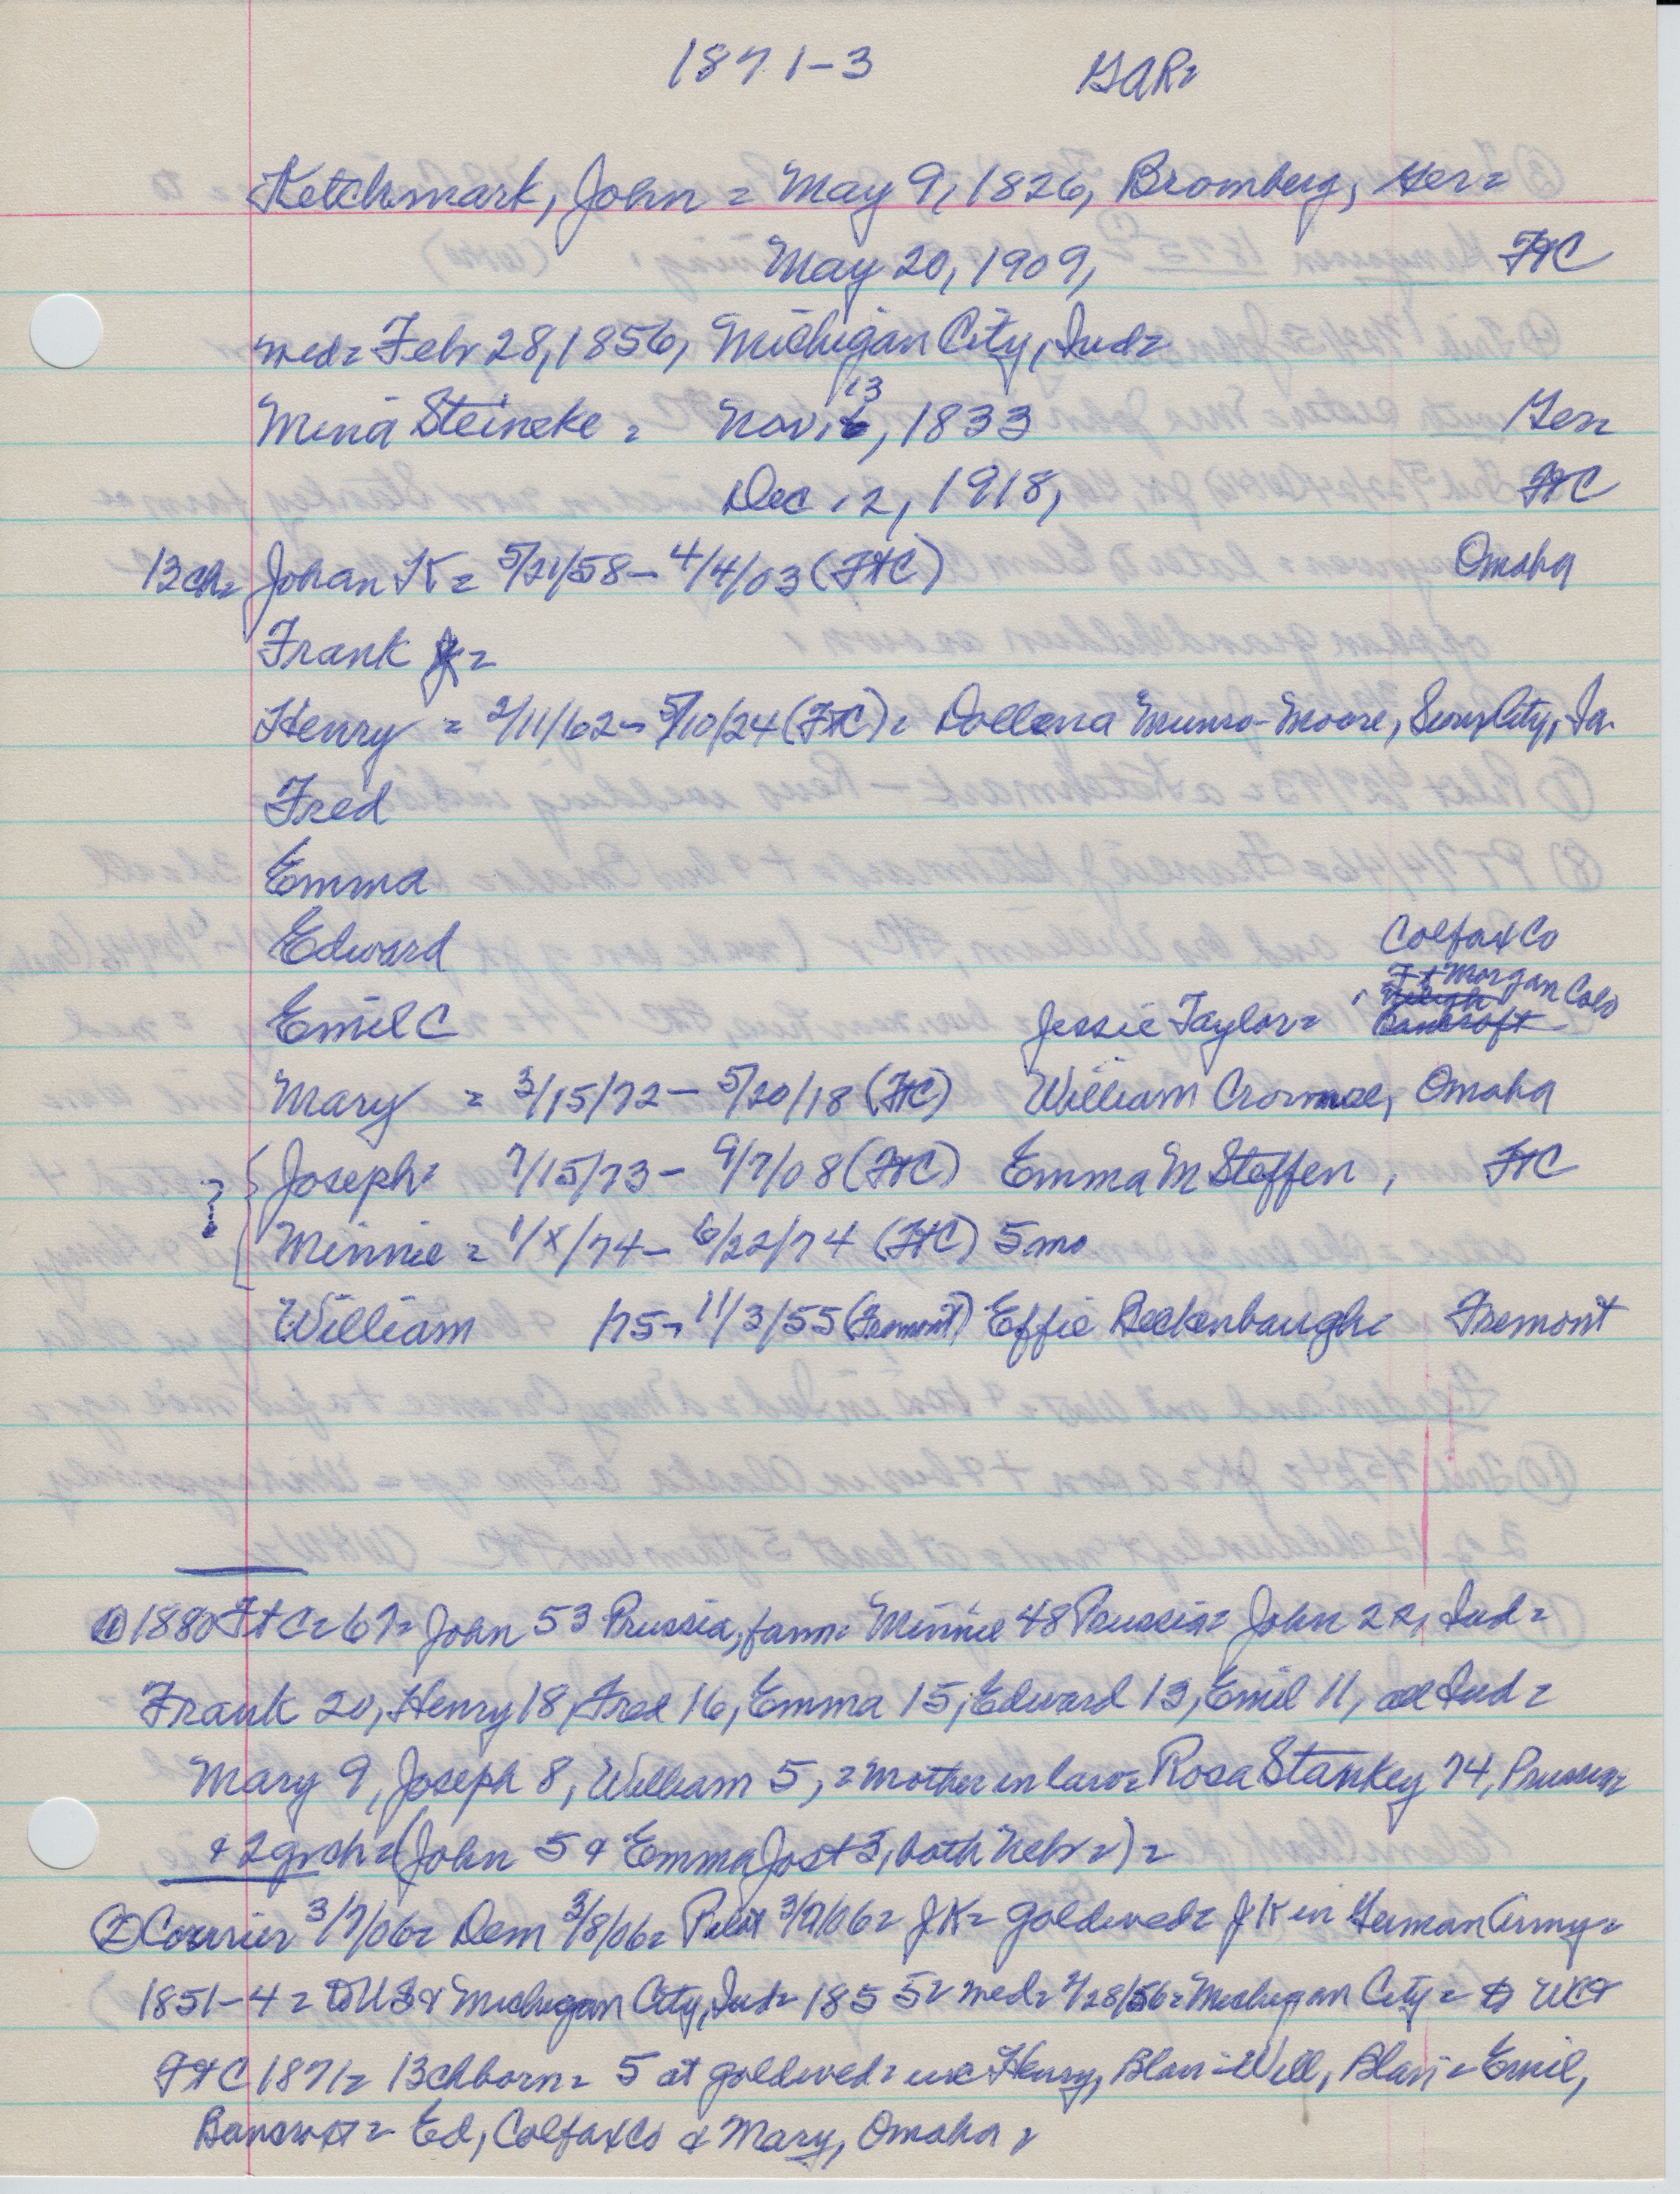 1871-3 GAR=
Ketchmark, John = May 9, 1826, Bromberg, Ger=
May 20, 1909, FtC
wed= Febr 28, 1856, Michigan City, Ind=
13
Mina Steineke = Nov. 6, 1833 Ger
Dec 12, 1918, FtC
13ch= Johan K = 5/21/58 - 4/4/03 (FtC) Omaha
Frank J =
Henry = 2/11/62 - 5/10/24 (FtC) = Dollena Munro-Moore, Sioux City, Ia.
Fred
Emma
Edward Colfax Co
Ft Morgan Colo
Neligh
Emil C Jessie Taylor = Bancroft
Mary = 3/15/72 - 5/20/18 (FtC) William Cromne, Omaha
Joseph= 7/15/73 - 9/7/08 (FtC) Emma M Steffen, FtC
? Minnie = 1/x/74 - 6/22/74 (FtC) 5mo
William /75 - 11/3/55 (Fremont) Effie Beckenbaugh= Fremont
① 1880 FtC = 67 = John 53 Prussia, farm= Minnie 48 Prussia= John 22, Ind=
Frank 20, Henry 18, Fred 16, Emma 15, Edward 13, Emil 11, all Ind=
Mary 9, Joseph 8, William 5, = mother in law= Rosa Stankey 74, Prussia=
+ 2 grch = (John 5 & Emma Jost 3, both Nebr=) =
② Courier 3/7/06= Dem 3/8/06= Pilot 3/7/06= JK= goldwed= JK in German Army=
1851-4 = to US & Michigan City, Ind= 1855= wed= 2/28/56= Michigan City= to WC &
FtC 1871= 13 ch born= 5 at goldwed= Henry, Blair= Will, Blair= Emil,
Bancroft= Ed, Colfax Co & Mary, Omaha,